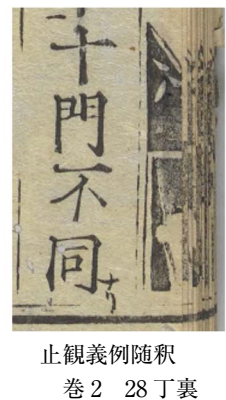 十門不同ナリ
止観義例随釈
巻2　28丁裏